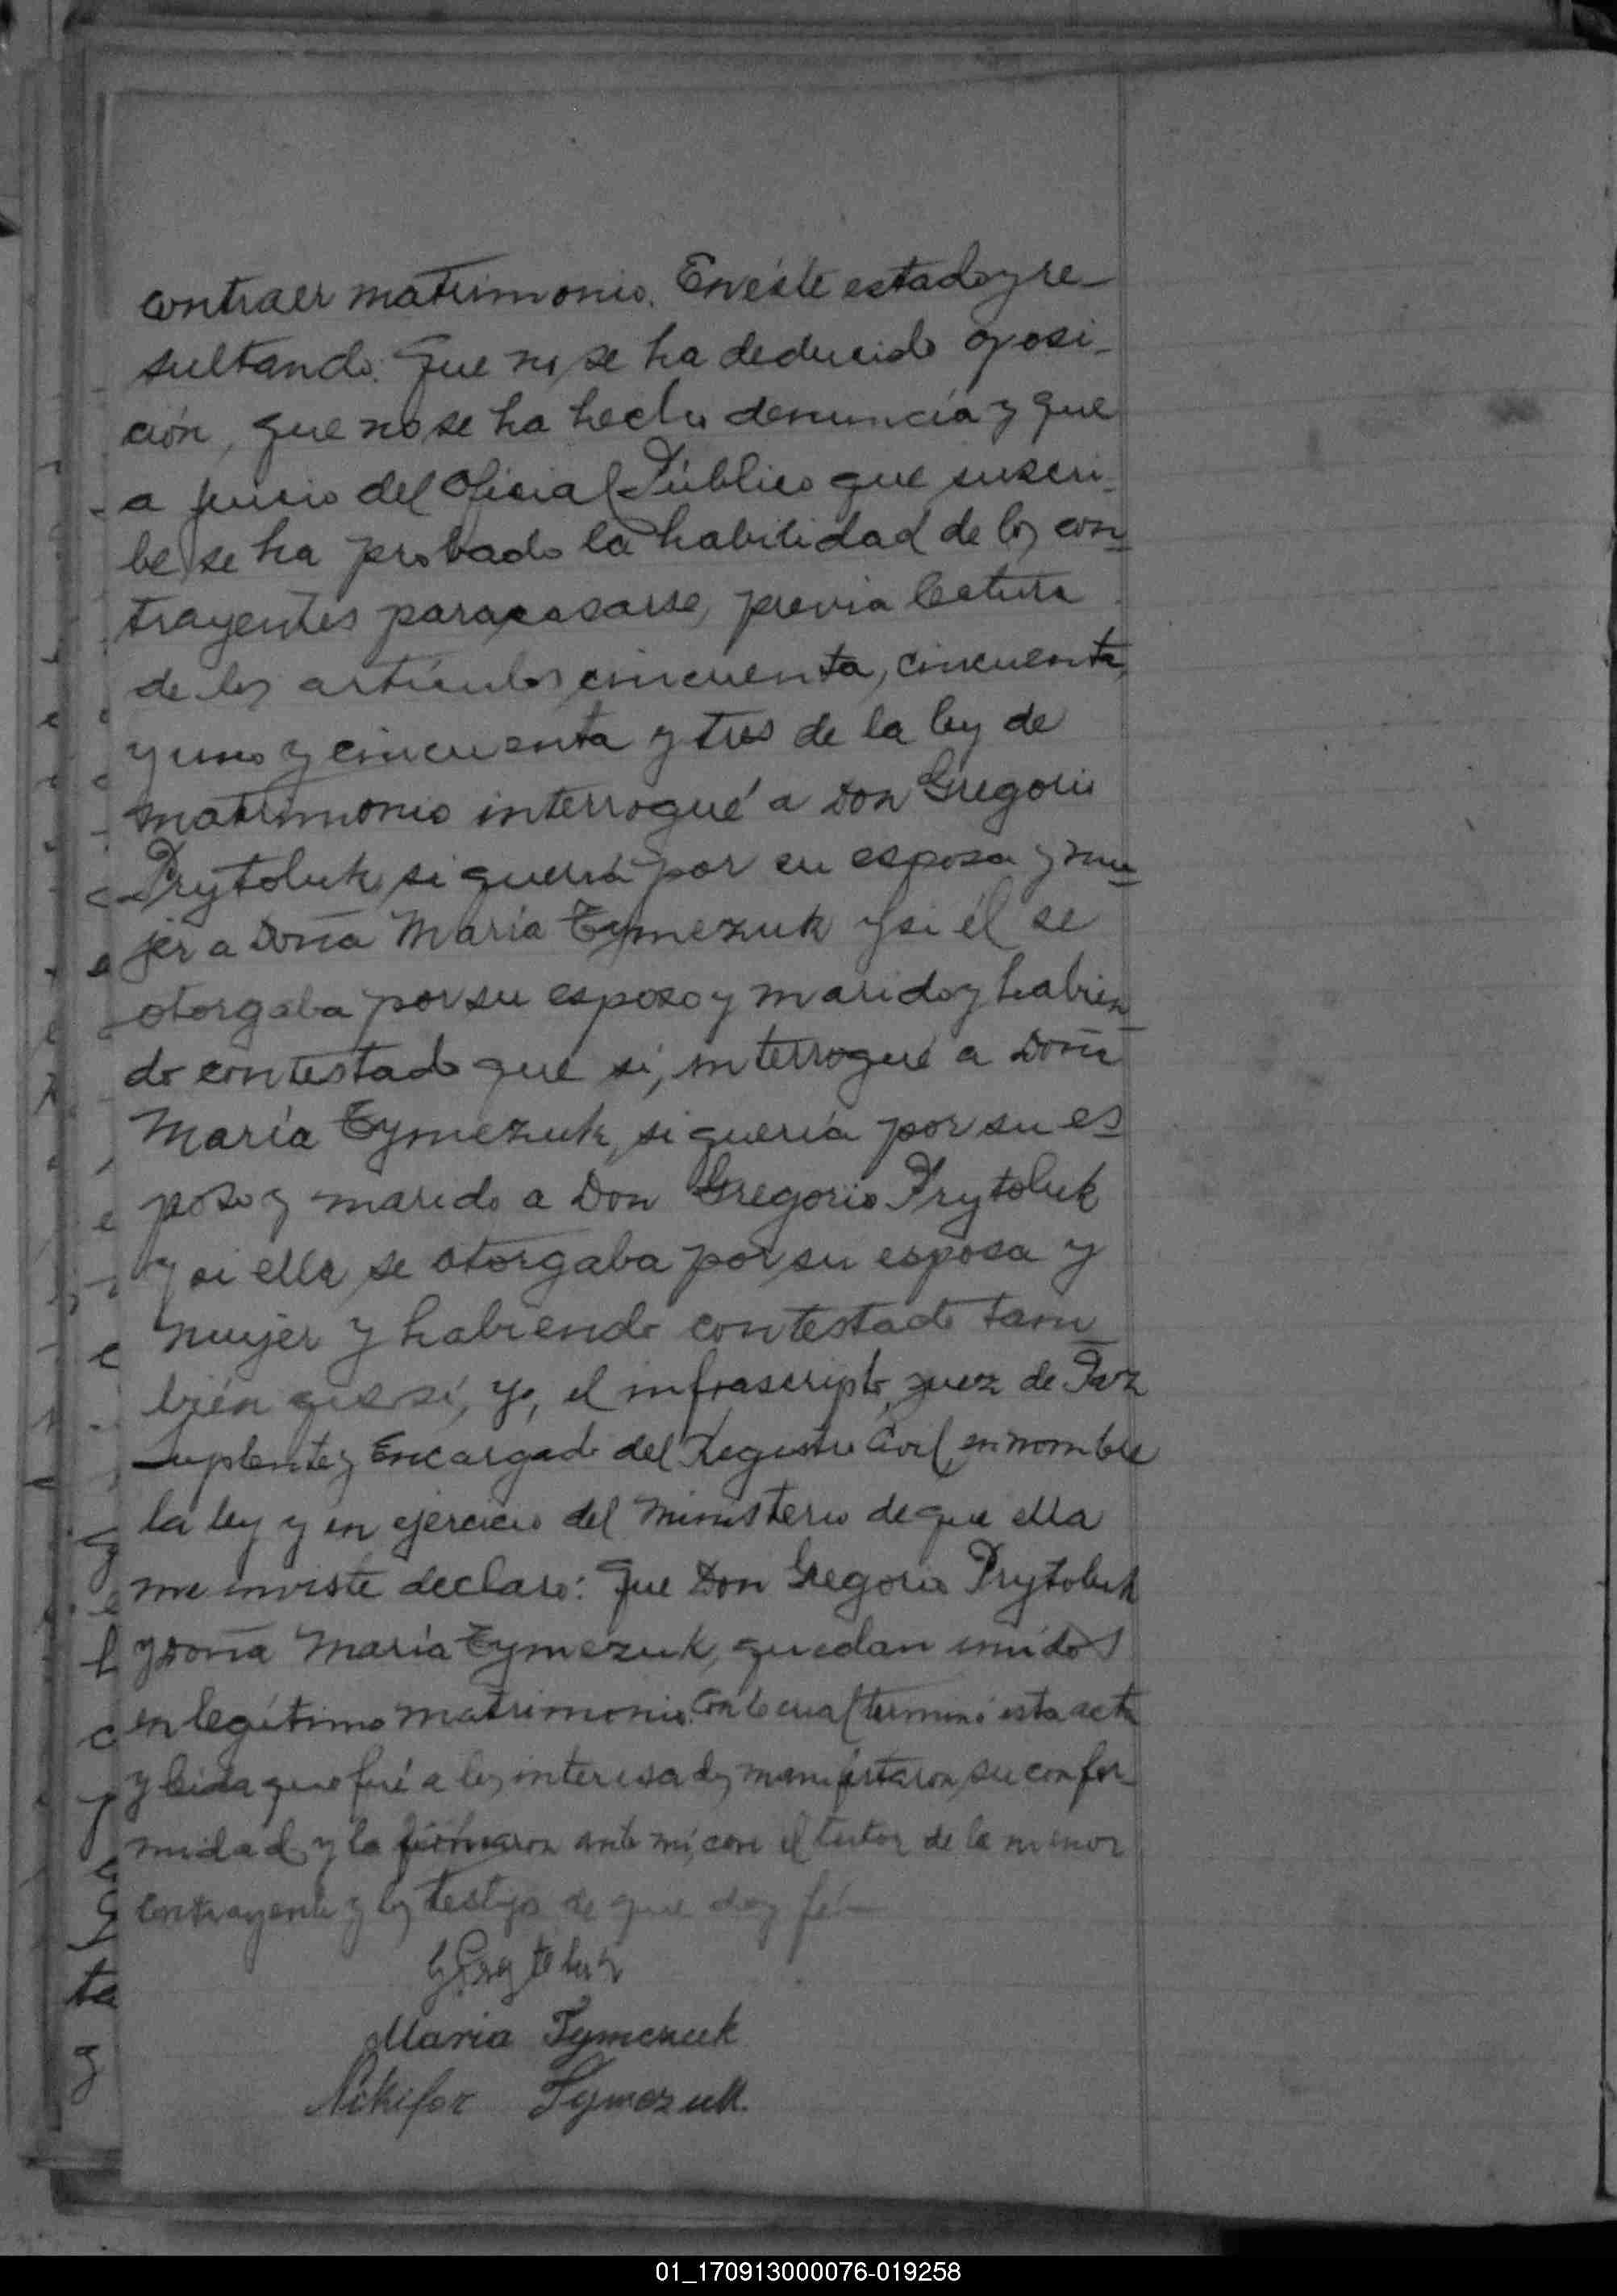 contraer matrimonio. En éste estado y re-
sultando: Que no se ha deducido oposi-
ción, que no se ha hecho denuncia y que
a juicio del Oficial Público que suscri-
be se ha probado la habilidad de los con-
trayentes para casarse, previa lectura
de los artículos cincuenta, cincuenta
y uno y cincuenta y tres de la ley de
matrimonio interrogué a Don Gregorio
Prytoluk si quería por su esposa y mu-
jer a Doña María Tymczuk y si él se
otorgaba por su esposo y marido y habien-
do contestado que sí, interrogué a Doña
María Tymczuk, si quería por su es-
poso y marido a Don Gregorio Prytoluk
y si ella se otorgaba por su esposa y
mujer y habiendo contestado tam-
bién que sí, yo, el infrascripto, Juez de Paz
suplente y Encargado del Registro Civil, en nombre
la ley y en ejercicio del ministerio de que ella
me inviste declaro: Que Don Gregorio Prytoluk
y Doña María Tymczuk, quedan unidos
en legítimo matrimonio. Con lo cual terminó esta acta
y leida que fué a los interesados manifestaron su confor-
midad y la firmaron ante mí, con el tutor de la menor
contrayente y los testigos de que doy fé.-
G Prytoluk
Maria Tymczuk
Nikifor Tymczuk
01_170913000076-019258